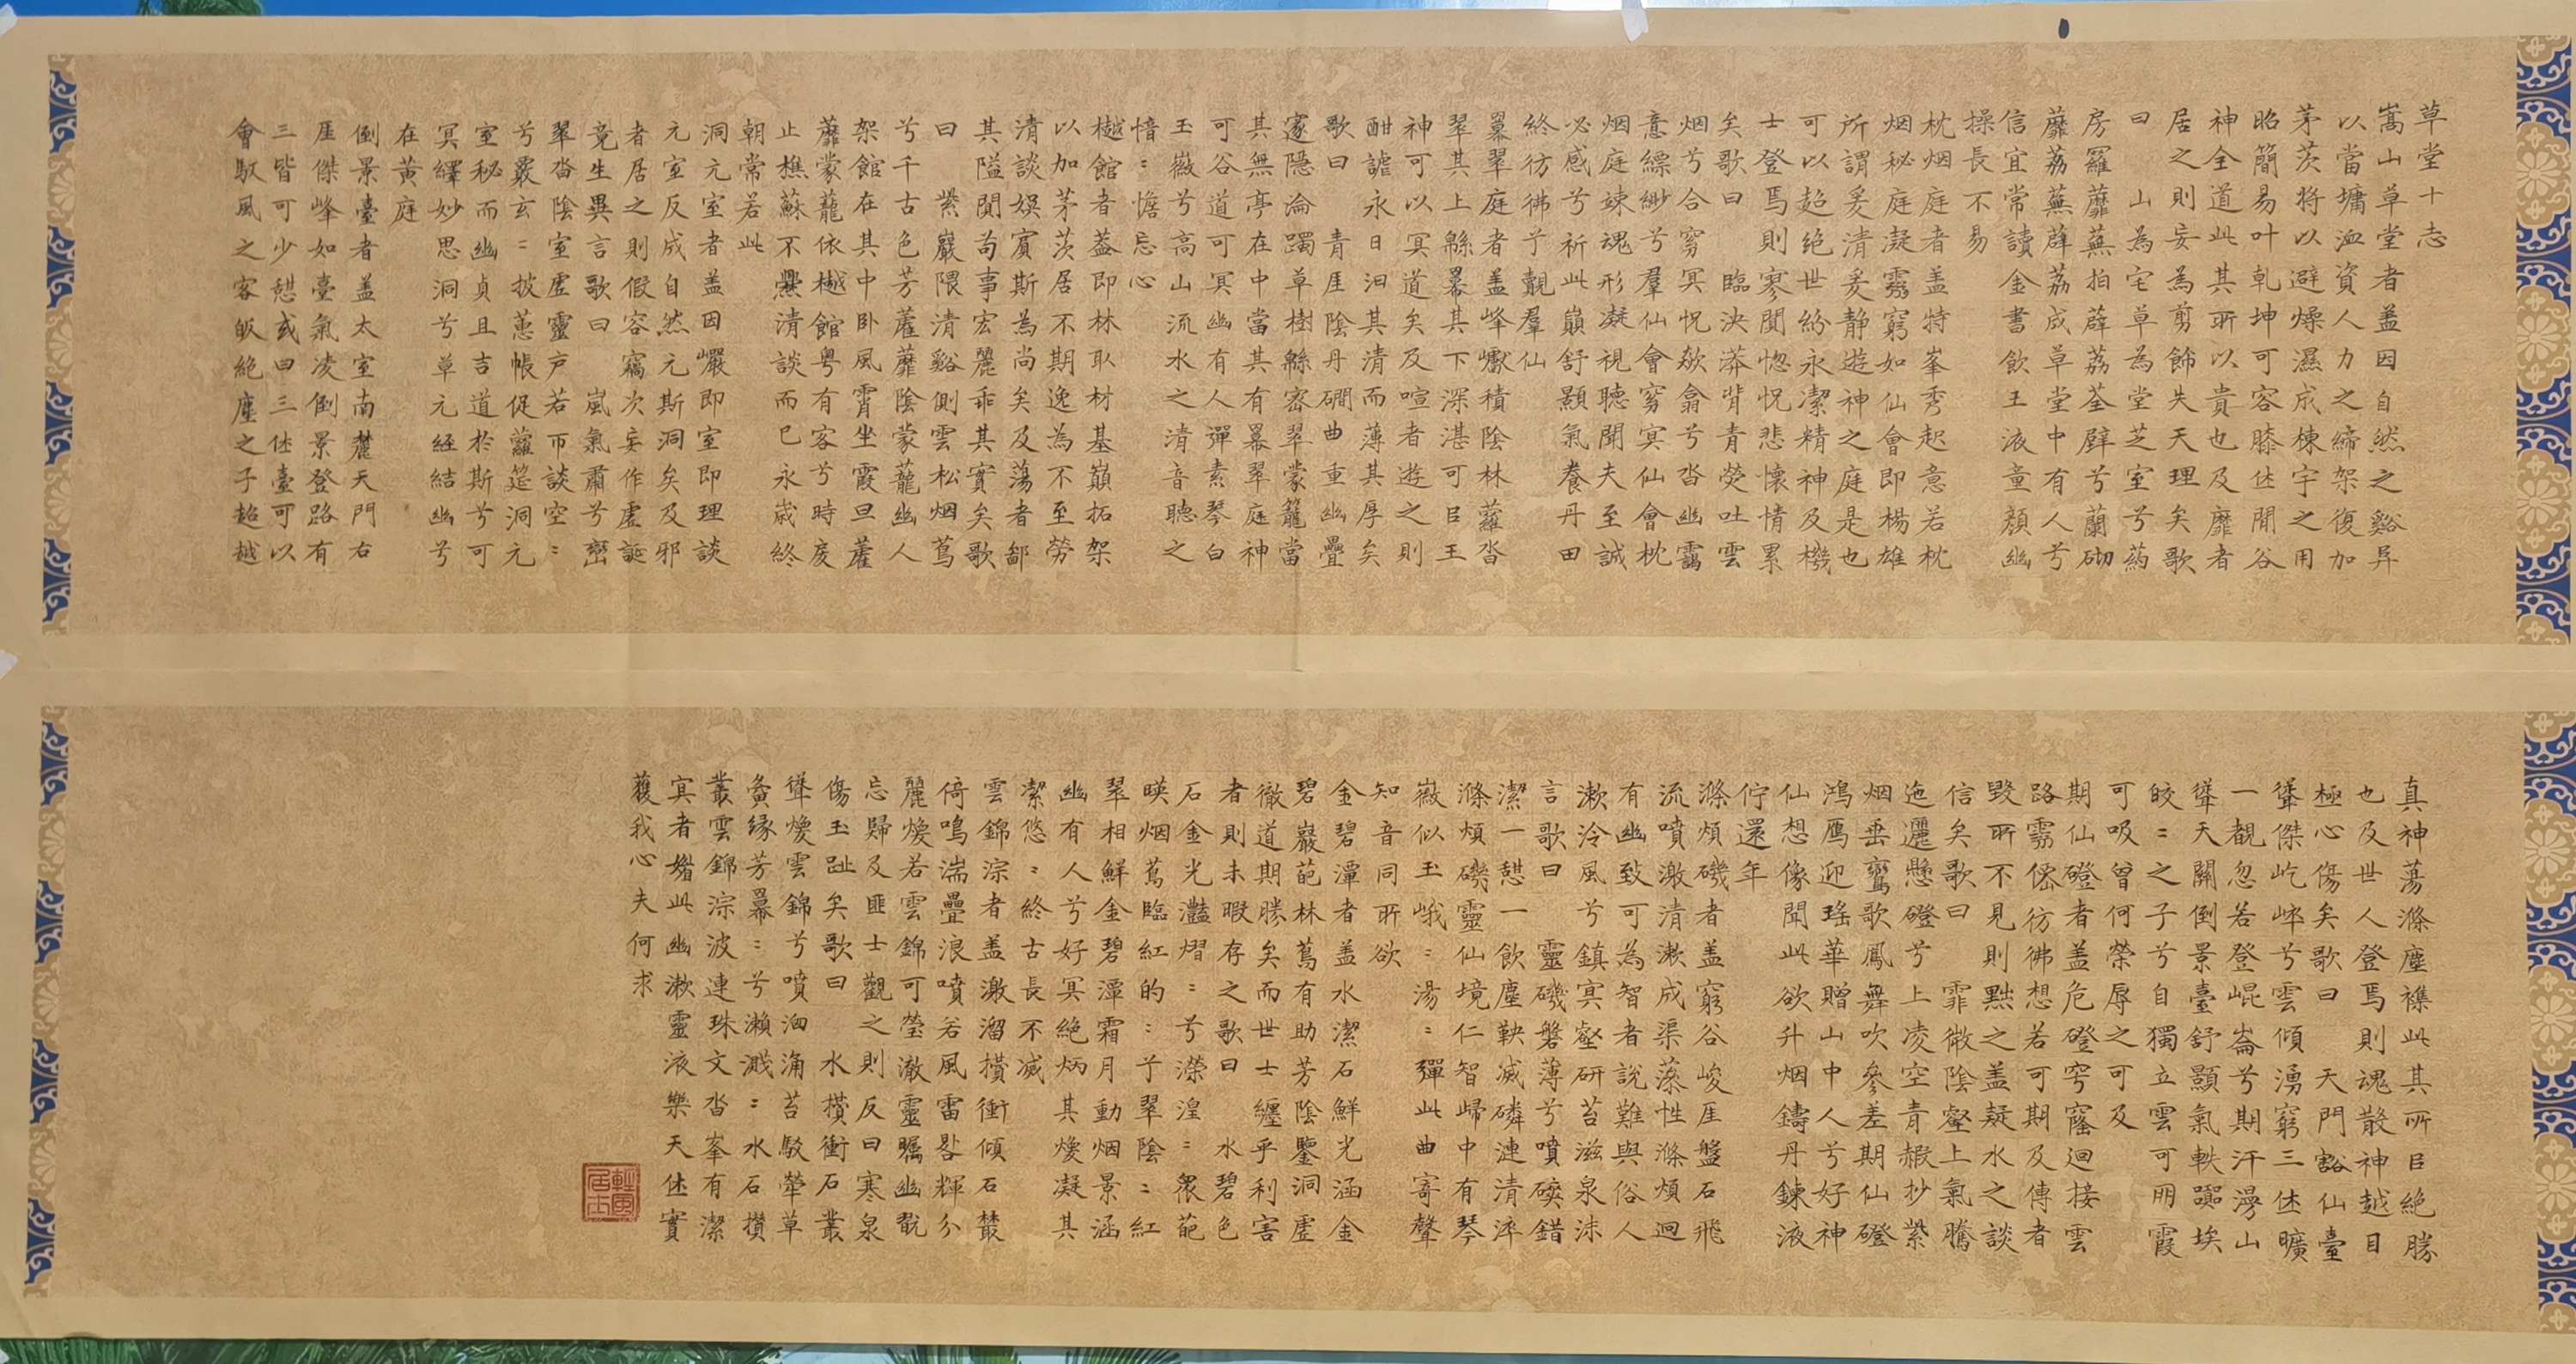 草堂十志
嵩山草堂者盖因自然之谿异
以當墉洫資人力之締架復加
茅茨将以避燥濕成棟宇之用
昭簡易叶乾坤可容膝休閒谷
神全道此其所以貴也及靡者
居之則妄為剪飾失天理矣歌
曰　山為宅草為堂芝室兮葯
房羅蘼蕪拍薜荔荃壁兮蘭砌
蘼荔蕪薜荔成草堂中有人兮
信宜常讀金書飲玉液童顔幽
操長不易
枕烟庭者盖特峯秀起意若枕
烟秘庭凝霛窮如仙會即楊雄
所謂爰清爰静遊神之庭是也
可以超絶世紛永潔精神及機
士登焉則寥閴惚怳悲懷情累
矣歌曰　臨泱漭背青熒吐雲
烟兮合窈冥怳欻翕兮沓幽靄
意縹緲兮羣仙會窈冥仙會枕
烟庭竦魂形凝視聽聞夫至誠
必感兮祈此巔舒顥氣養丹田
終彷彿兮覿羣仙
羃翠庭者盖峰巘積陰林蘿沓
翠其上緜羃其下深湛可㠯王
神可以冥道矣及喧者遊之則
酣謔永日汩其清而薄其厚矣
歌曰　青厓陰丹磵曲重幽疊
邃隱淪躅草樹緜宻翠蒙籠當
其無亭在中當其有羃翠庭神
可谷道可冥幽有人彈素琴白
玉徽兮高山流水之清音聽之
愔﹦憺忘心
樾館者葢即林取材基巔拓架
以加茅茨居不期逸為不至勞
清談娯賓斯為尚矣及荡者鄙
其隘閴苟事宏麗乖其實矣歌
曰　紫巖隈清谿側雲松烟蔦
兮千古色芳蘿蘼陰蒙蘢幽人
架館在其中卧風霄坐霞旦蘿
蘼蒙蘢依樾館粤有客兮時戾
止樵蘇不爨清談而已永歳終
朝常若此
洞元室者盖因巖即室即理談
元室反成自然元斯洞矣及邪
者居之則假容竊次妄作虚誕
竞生異言歌曰　嵐氣肅兮巒
翠沓陰室虚靈户若帀談空﹦
兮覈玄﹦披蕙帳促蘿筵洞元
室秘而幽貞且吉道於斯兮可
冥繹妙思洞兮草元经結幽兮
在黄庭
倒景臺者盖太室南麓天門右
厓傑峰如臺氣凌倒景登路有
三皆可少憩或曰三休臺可以
會馭風之客皈絶塵之子超越
真神蕩滌塵襟此其所㠯絶勝
也及世人登焉則魂散神越目
極心傷矣歌曰　天門豁仙臺
聳傑屹崒兮雲傾湧窮三休曠
一觀忽若登崐崙兮期汗漫山
聳天關倒景臺舒顥氣軼囂埃
皎﹦之子兮自獨立雲可朋霞
可吸曾何榮辱之可及
期仙磴者盖危磴穹窿迴接雲
路霛儛彷彿想若可期及傳者
毀所不見則黜之盖疑水之談
信矣歌曰　霏微陰壑上氣騰
迤邐懸磴兮上凌空青赮抄紫
烟垂鸞歌鳳舞吹參差期仙磴
鴻鴈迎瑤華贈山中人兮好神
仙想像聞此欲升烟鑄丹鍊液
佇還年
滌煩磯者盖窮谷峻厓盤石飛
流噴激清漱成渠滌性滌煩迴
有幽致可為智者說難與俗人
言歌曰　靈磯磐薄兮噴礦錯
漱泠風兮鎮冥壑研苔滋泉沫
潔一憩一飲塵鞅滅磷漣清淬
滌煩磯靈仙境仁智歸中有琴
徽似玉峨﹦湯﹦彈此曲寄聲
知音同所欲
金碧潭者盖水潔石鮮光涵金
碧巖葩林蔦有助芳陰鑒洞虚
徹道期勝矣而世士纏乎利害
者則未暇存之歌曰　水碧色
石金光灩熠﹦兮瀠湟﹦衆葩
暎烟蔦臨紅的﹦兮翠陰﹦紅
翠相鮮金碧潭霜月動烟景涵
幽有人兮好冥絶炳其煥凝其
潔悠﹦終古長不滅
雲錦淙者盖激溜攅衝傾石叢
倚鳴湍疊浪噴若風雷畧輝分
麗煥若雲錦可瑩澈靈矚幽翫
忘歸及匪士觀之則反曰寒泉
傷玉趾矣歌曰　水攅衝石叢
聳煥雲錦兮噴洶涌苔駮犖草
夤縁芳羃﹦兮瀨濺﹦水石攅
叢雲錦淙波連珠文沓峯有潔
冥者媨此幽漱靈液樂天休實
獲我心夫何求